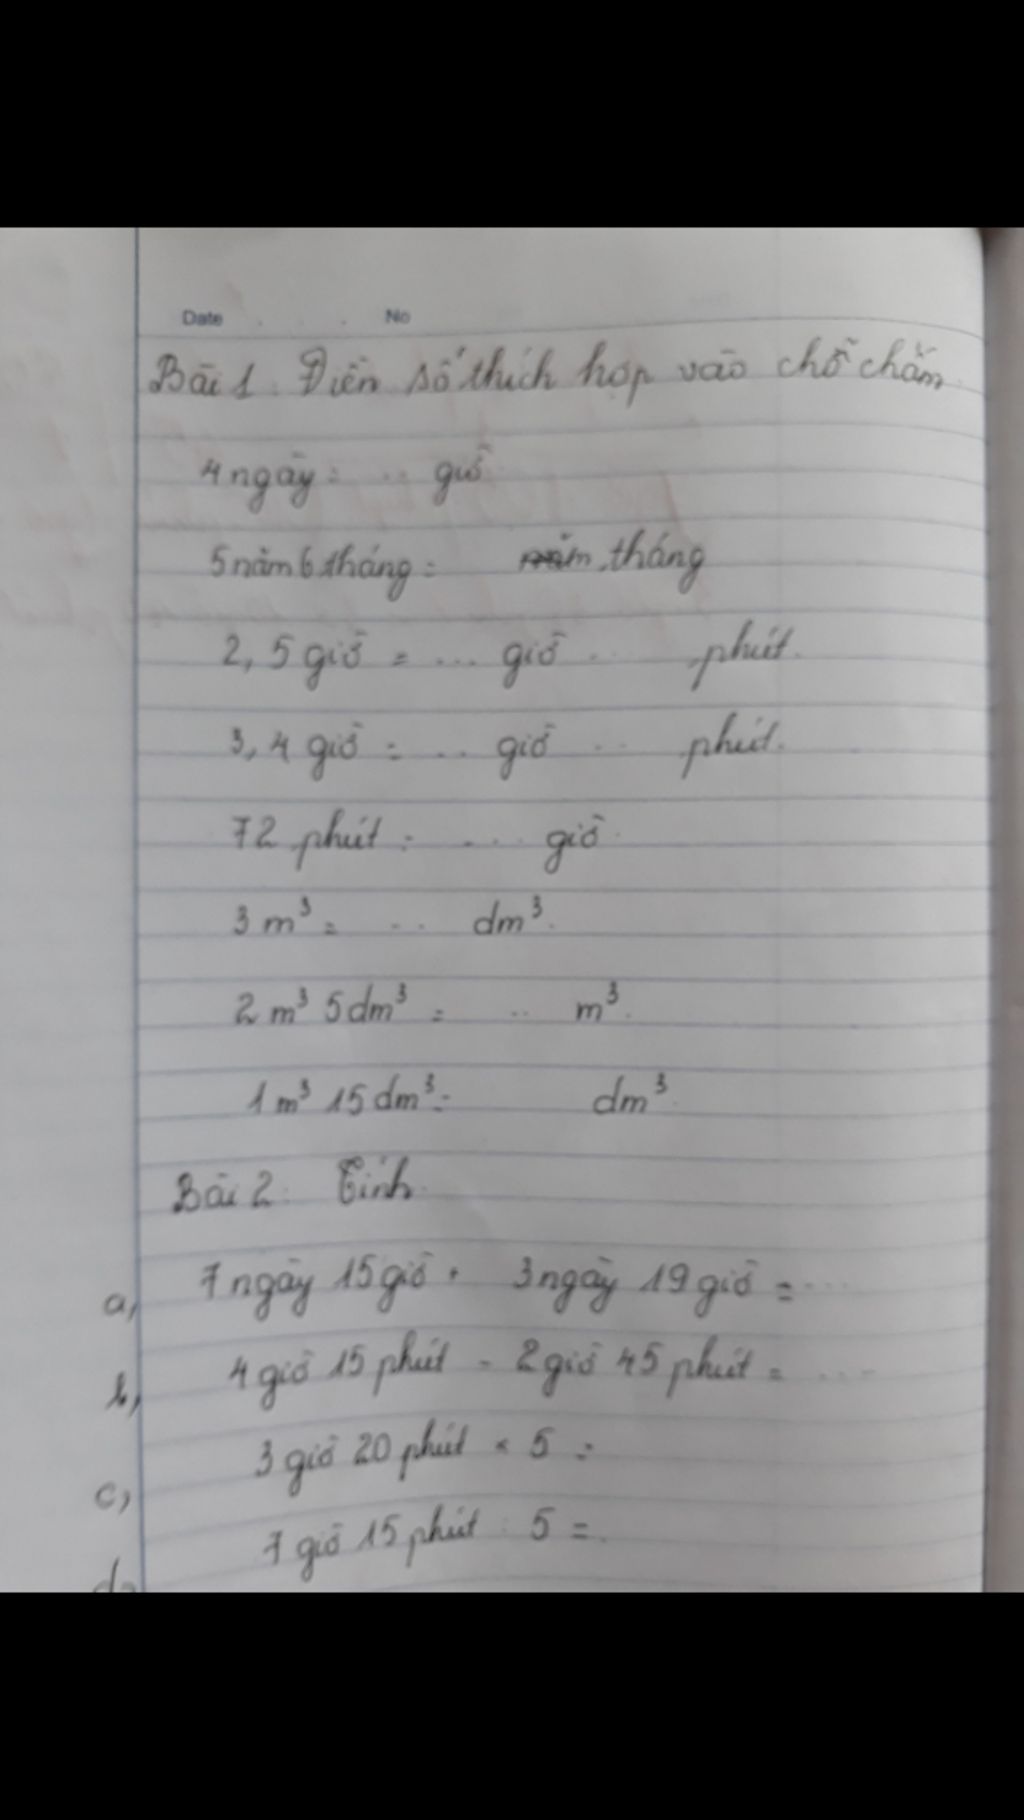 Date No
Bài 1: Điền số thích hợp vào chỗ chấm.
4 ngày = ... giờ
5 năm 6 tháng = tháng
2,5 giờ = ... giờ ... phút.
3,4 giờ = ... giờ ... phút.
72 phút = .... giờ.
3 m³ = ... dm³.
2 m³ 5 dm³ = ... m³.
1 m³ 15 dm³ = dm³.
Bài 2: Tính.
a, 7 ngày 15 giờ + 3 ngày 19 giờ = ....
b, 4 giờ 15 phút - 2 giờ 45 phút = ....
c, 3 giờ 20 phút × 5 =
d, 7 giờ 15 phút : 5 = .